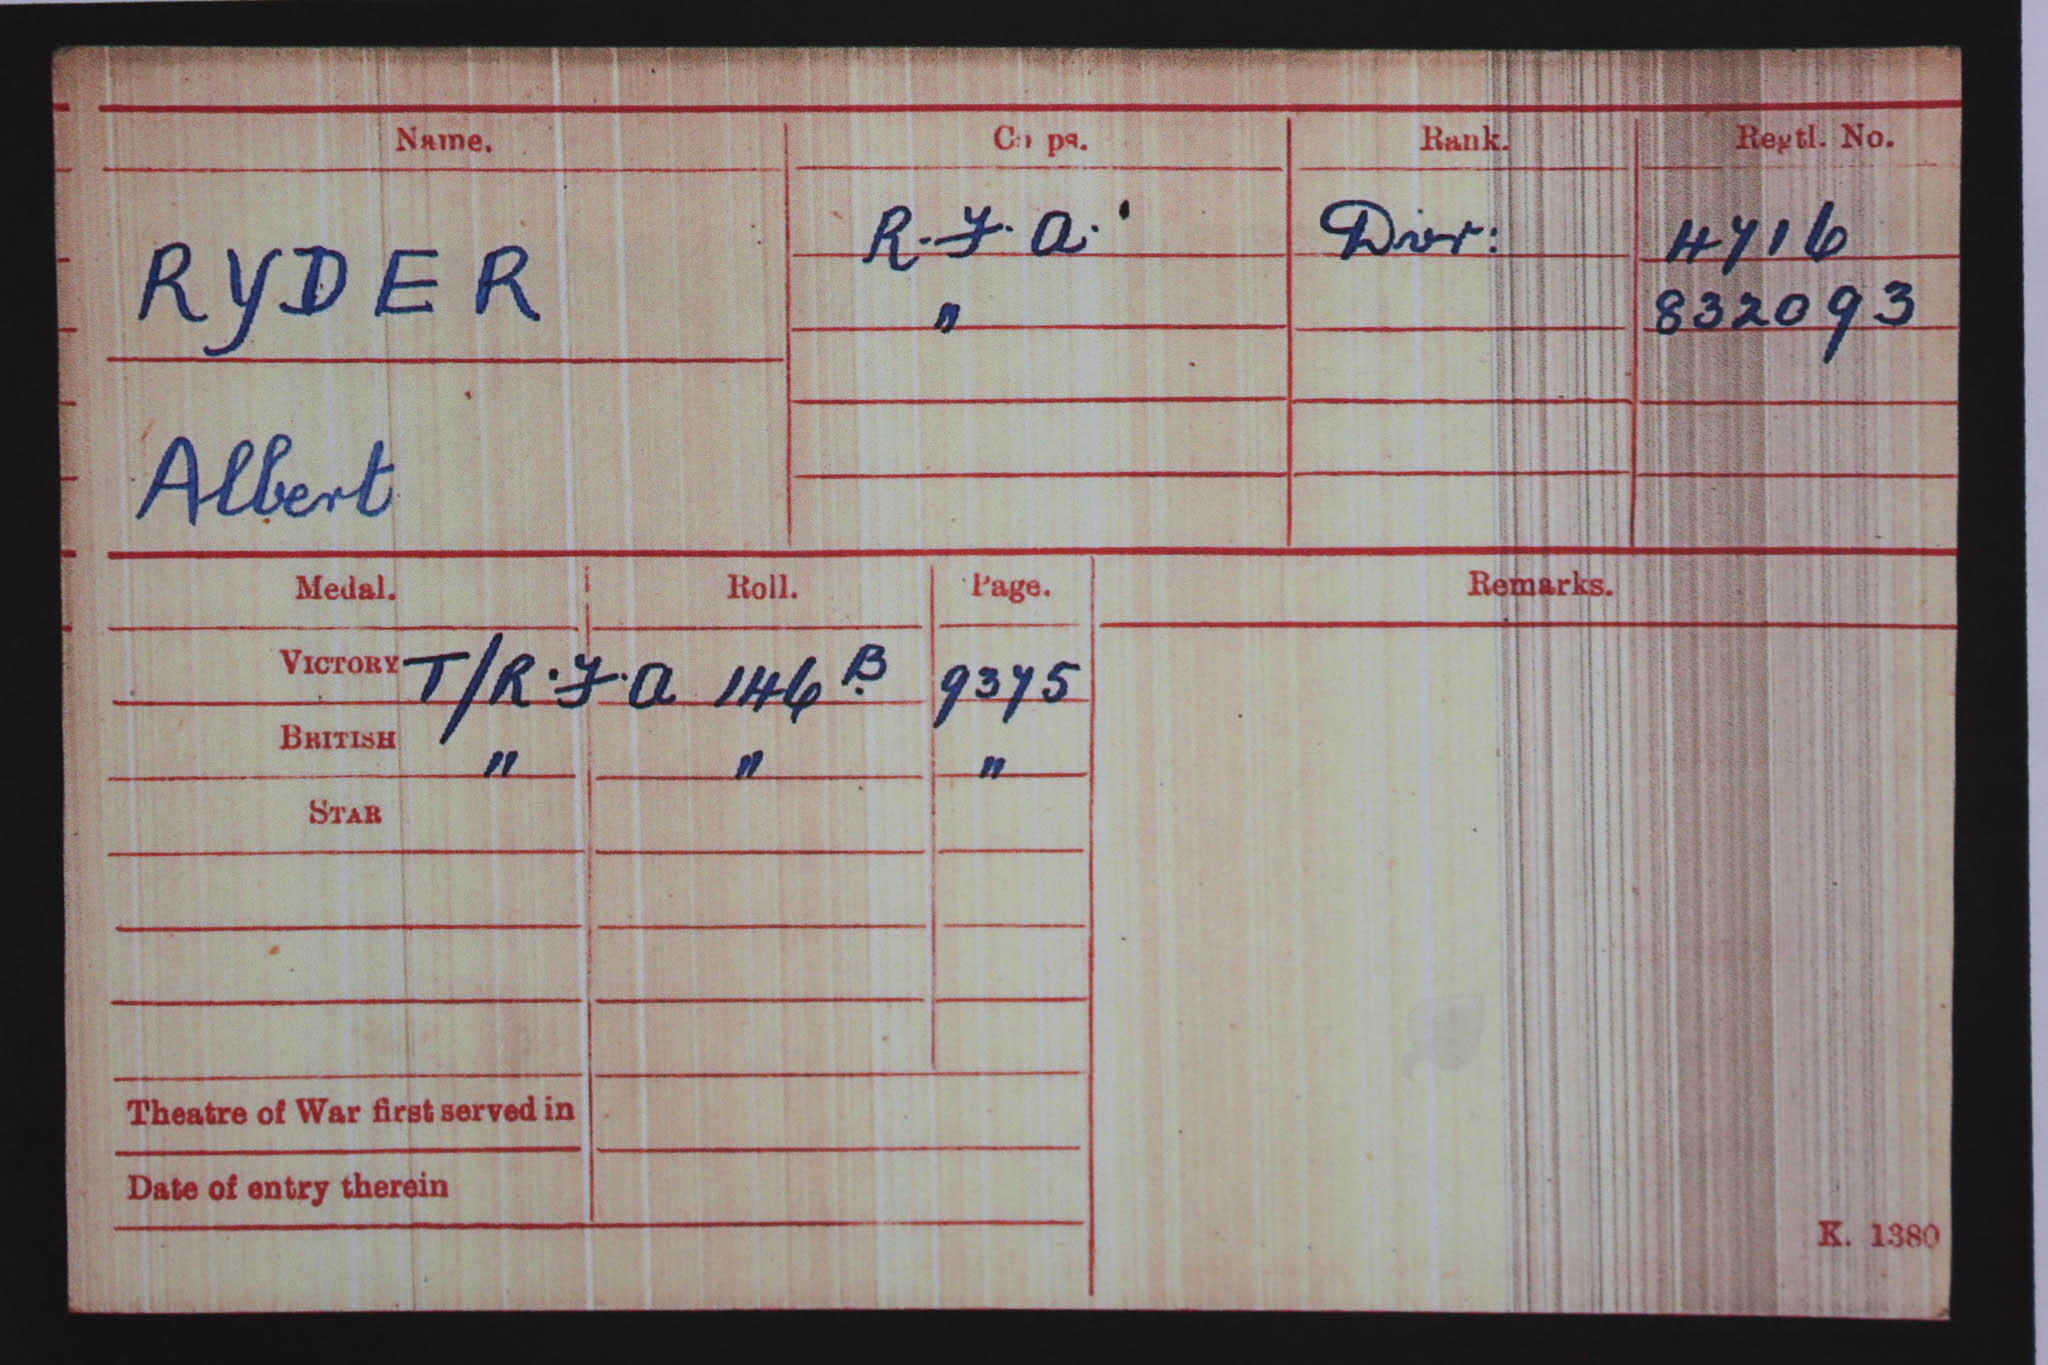 Name. Corps. Rank. Regtl. No.
RYDER R.F.A. Dvr: 4716
" 832093
Albert
Medal. Roll. Page. Remarks.
VICTORY T/R.F.A 146 B 9375
BRITISH " " "
STAR
Theatre of War first served in
Date of entry therein
K. 1380